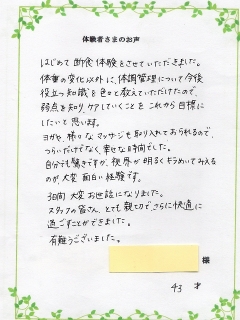 体験者さまのお声
はじめて断食体験をさせていただきました。
体重の変化以外に、体調管理について今後
役立つ知識を色々と教えていただけたので、
弱点を知り、ケアしていくことをこれから目標に
したいと思います。
ヨガや、様々なマッサージも取り入れておられるので、
つらいだけでなく、幸せな時間でした。
自分でも驚きですが、視界が明るくキラめいてみえる
のが、大変面白い経験です。
3日間大変お世話になりました。
スタッフの皆さん、とても親切で、さらに快適に
過ごすことができました。
有難うございました。
様
43 才